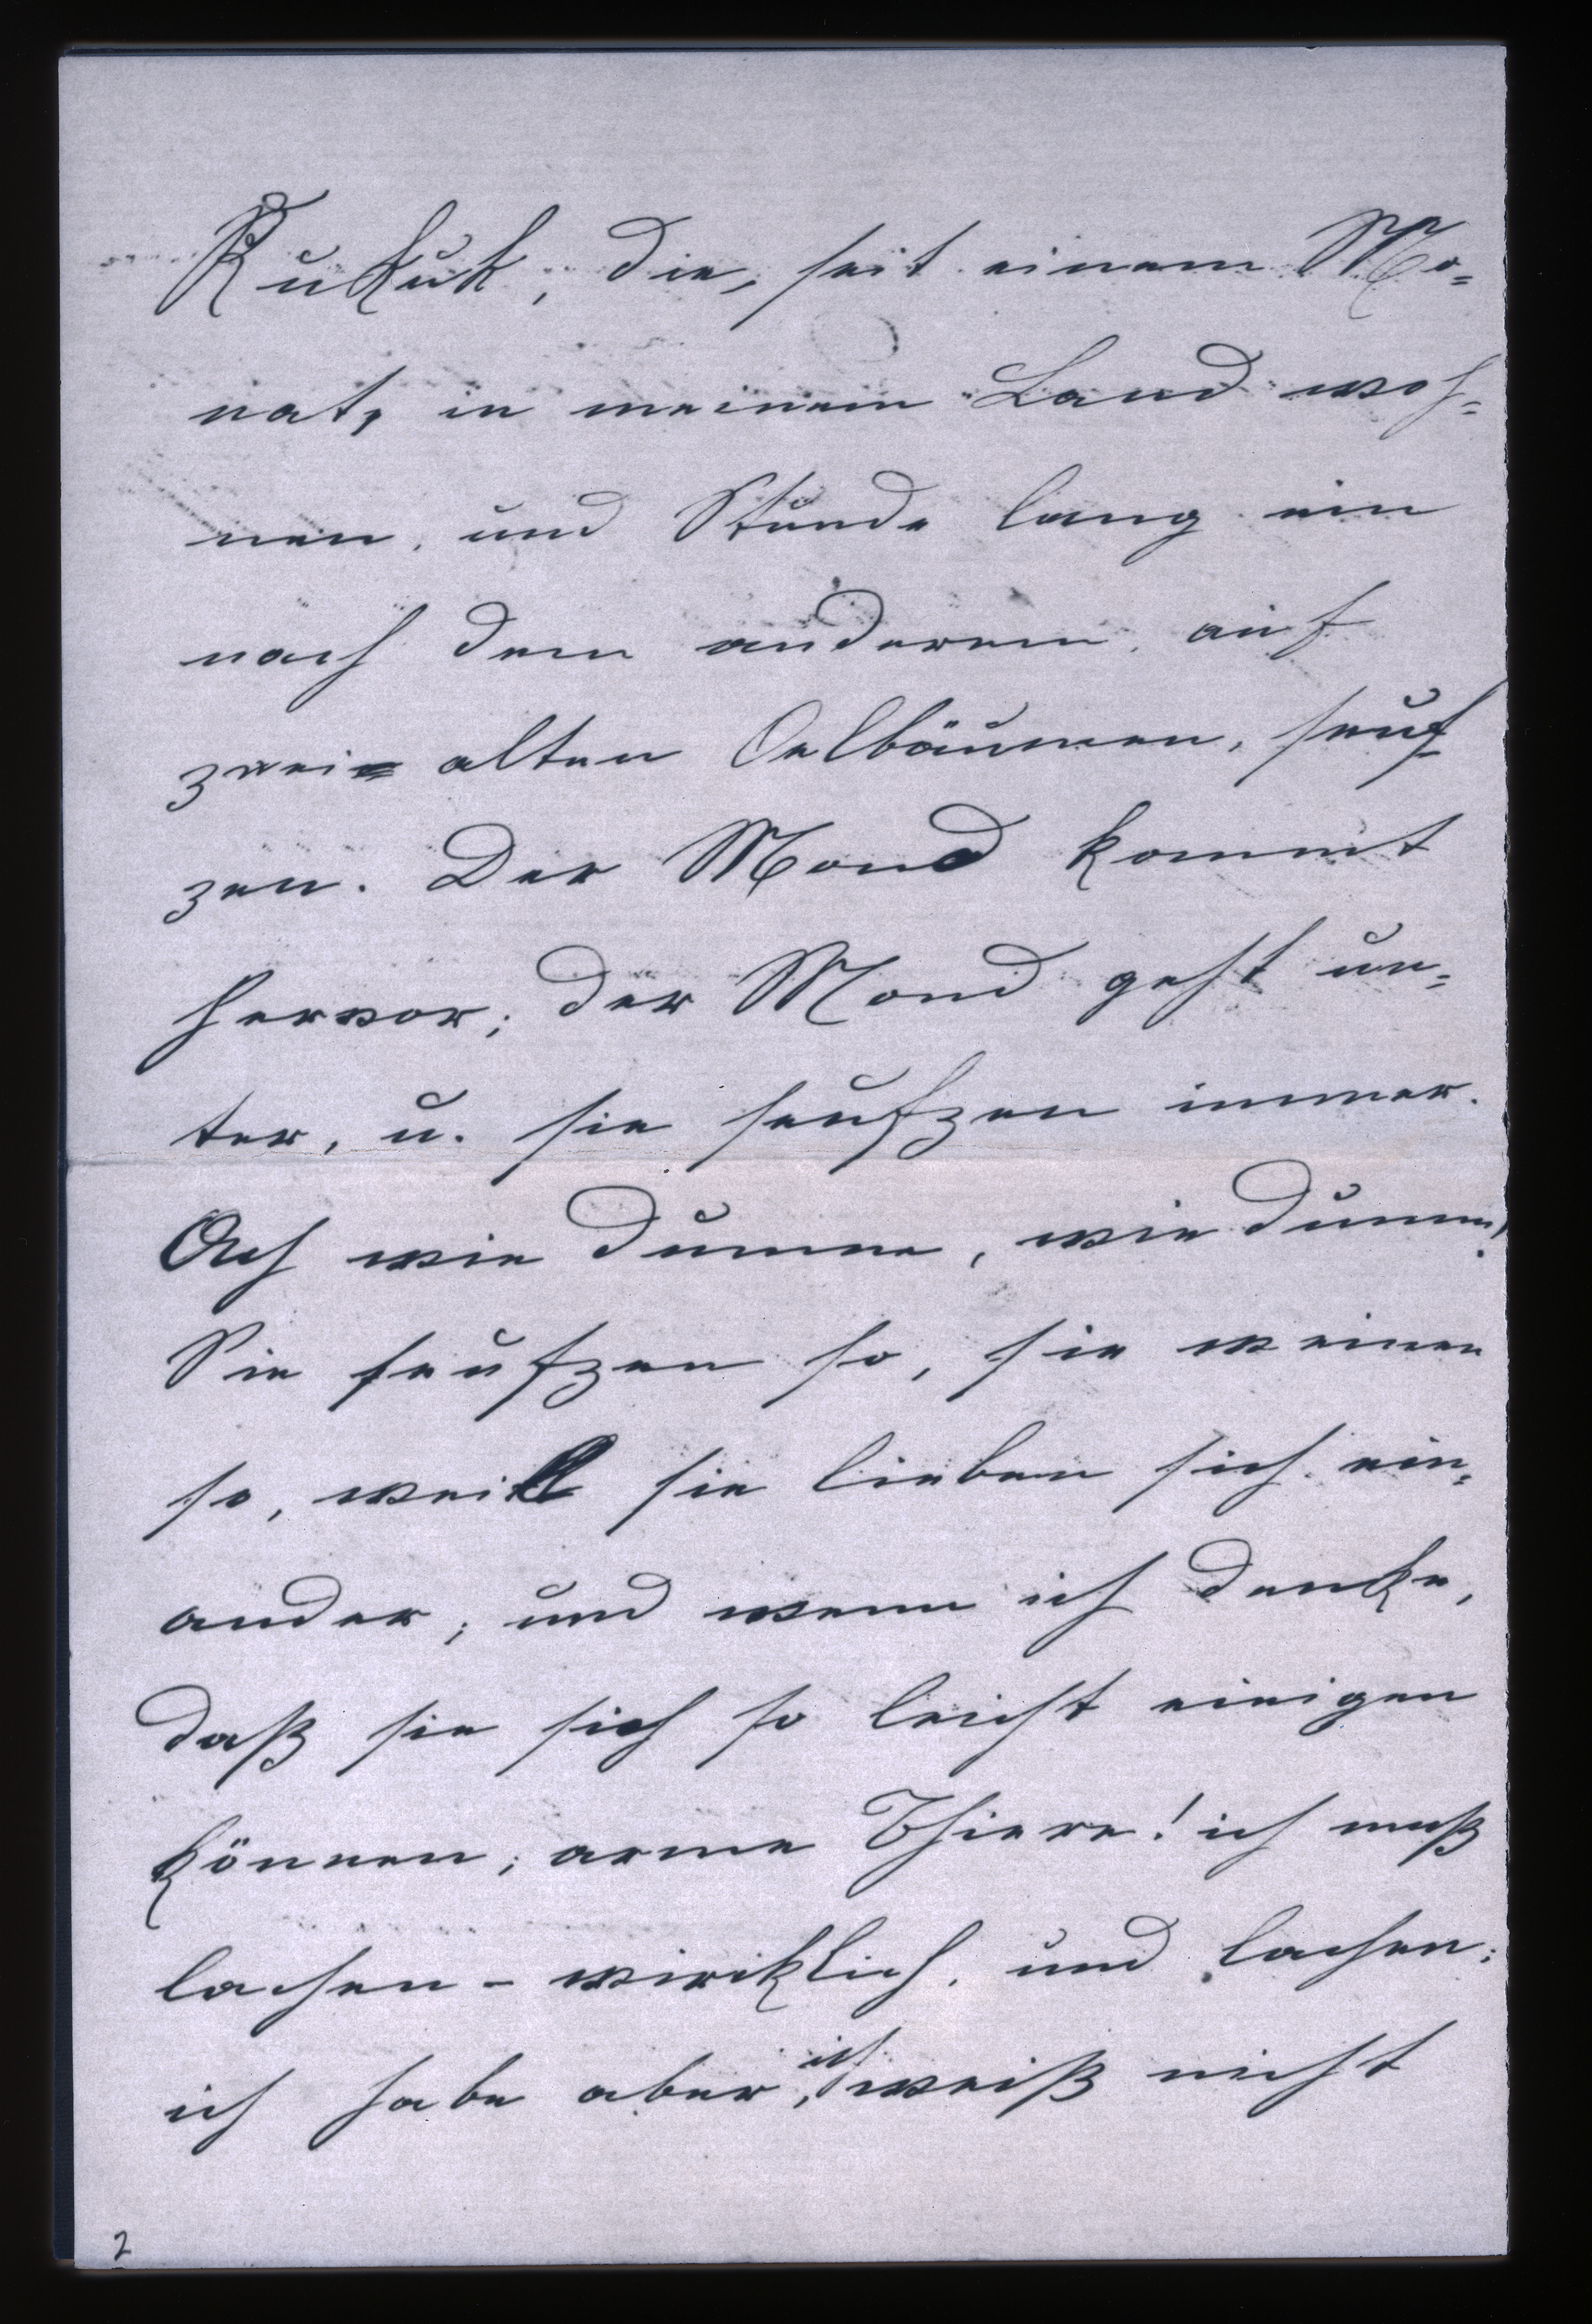 Kukuk, die, seit einem Mo=
nat, in meinem Land woh=
nen, und Stunde lang ein
nach dem anderem, auf
zwei alten Oelbäumen, seuf
zen. Der Mond kommt
hervor; der Mond geht un=
ter, u. sie seufzen immer.
Ach wie dumme, wie dumm!
Sie seufzen so, sie weinen
so, weil sie lieben sich ein=
ander; und wenn ich denke,
daß sie sich so leicht einigen
können; arme Thiere! ich muß
lachen - wirklich, und lachen;
ich habe aber, ich weiß nicht
2